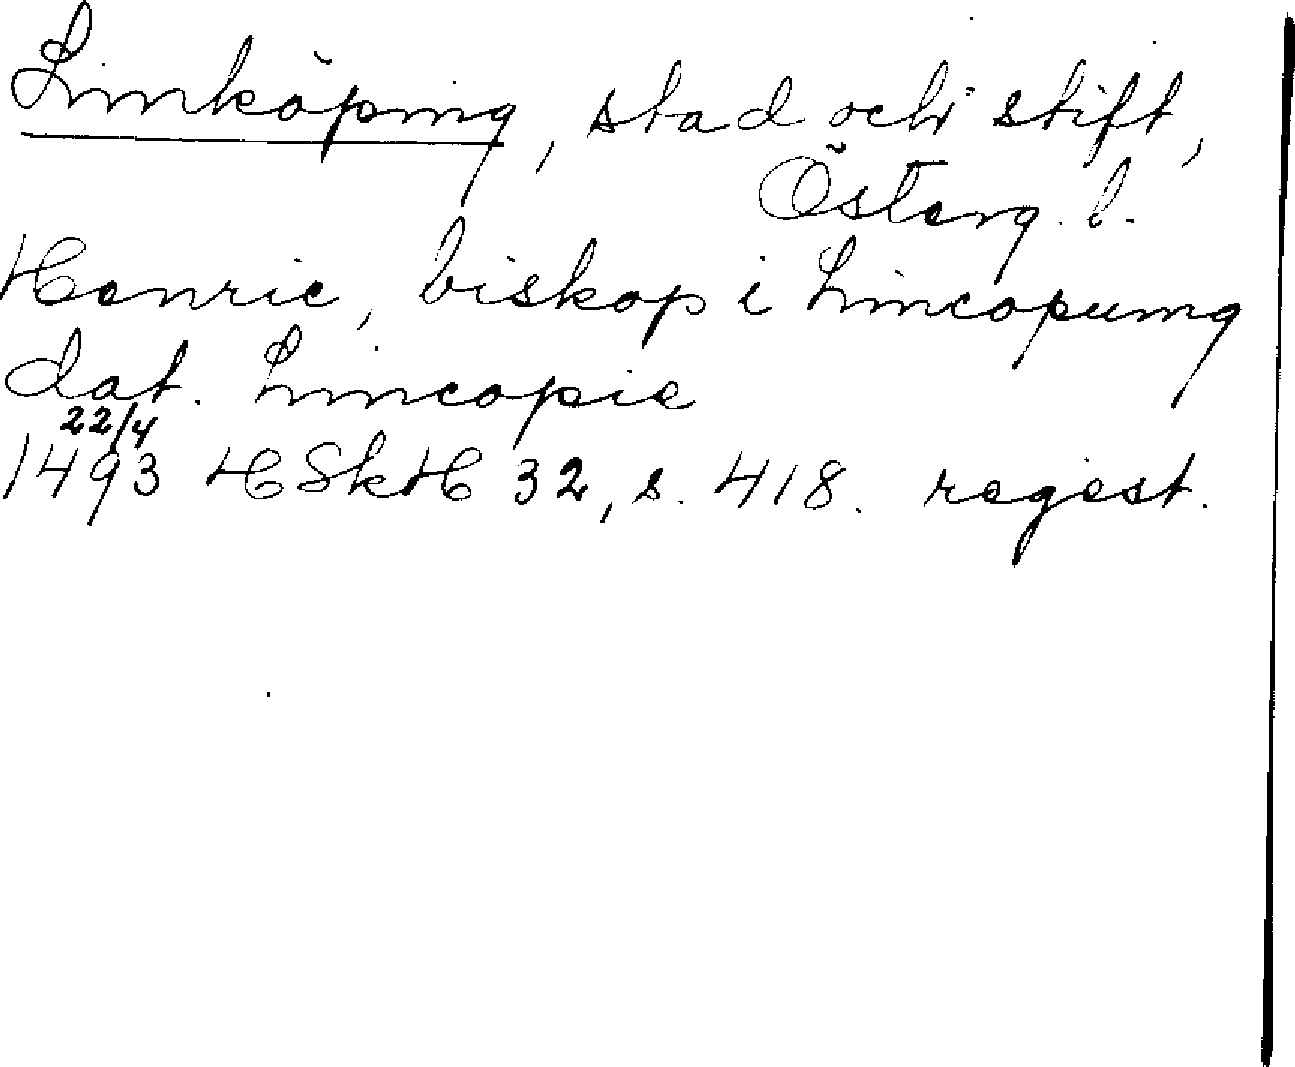 Linköping, stad och stift,
Österg. l.
Henric, biskop i Lincopung
dat. Lincopie
22/4
1493 HSkH 32, s. 418. regest.